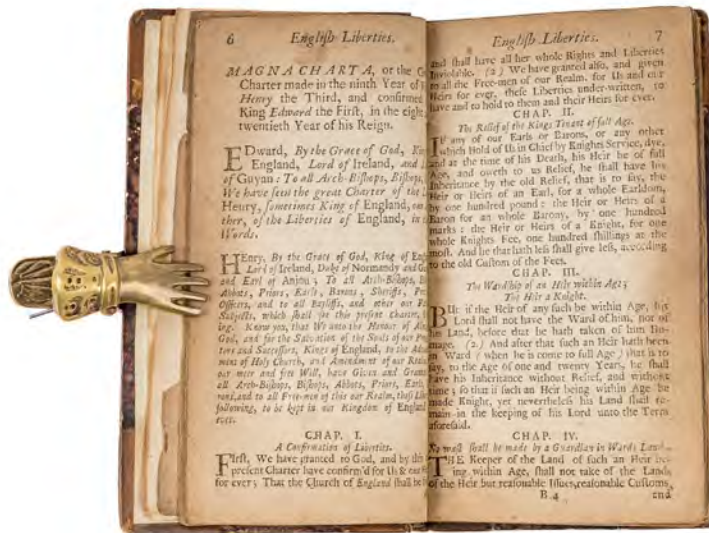 6 English Liberties.
MAGNA CHARTA, or the
Charter made in the ninth Year of
Henry the Third, and confirmed
King Edward the First, in the eight
twentieth Year of his Reign.
EDward, By the Grace of God,
England, Lord of Ireland, and
of Guyan: To all Arch-Bishops, Bishops,
We have seen the great Charter of the
Henry, sometimes King of England,
ther, of the Liberties of England, in
Words.
HEnry, By the Grace of God, King of
Lord of Ireland, Duke of Normandy and
and Earl of Anjou; To all Arch-Bishops,
Abbots, Priors, Earls, Barons, Sheriffs,
Officers, and to all Bayliffs, and other our
Subjects, which shall see this present Charter,
ing. Know you, that We unto the Honour of
God, and for the Salvation of the Souls of our
tors and Successors, Kings of England, to the
ment of Holy Church, and Amendment of our
our meer and free Will, have Given and
all Arch-Bishops, Bishops, Abbots, Priors,
rons, and to all Free-men of this our Realm,
following, to be kept in our Kingdom of
ever.
CHAP. I.
A Confirmation of Liberties.
FIrst, We have granted to God, and by this
present Charter have confirm'd for Us &
for ever; That the Church of England shall be
English Liberties. 7
and shall have all her whole Rights and Liberties
Inviolable. (2) We have granted also, and given
to all the Free-men of our Realm, for Us and our
Heirs for ever, these Liberties under-written, to
have and to hold to them and their Heirs for ever.
CHAP. II.
The Relief of the Kings Tenant of full Age.
IF any of our Earls or Barons, or any other
which Hold of Us in Chief by Knights Service, dye,
and at the time of his Death, his Heir be of full
Age, and oweth to us Relief, he shall have his
Inheritance by the old Relief, that is to say, the
Heir or Heirs of an Earl, for a whole Earldom,
by one hundred pound: the Heir or Heirs of a
Baron for an whole Barony, by one hundred
marks: the Heir or Heirs of a Knight, for one
whole Knights Fee, one hundred shillings at the
most. And he that hath less shall give less, according
to the old Custom of the Fees.
CHAP. III.
The Wardship of an Heir within Age;
The Heir a Knight.
BUt if the Heir of any such be within Age, his
Lord shall not have the Ward of him, nor of
his Land, before that he hath taken of him Ho-
mage. (2.) And after that such an Heir hath been
in Ward (when he is come to full Age) that is to
say, to the Age of one and twenty Years, he shall
have his Inheritance without Relief, and without
time; so that if such an Heir being within Age be
made Knight, yet nevertheless his Land shall re-
main in the keeping of his Lord unto the Term
aforesaid.
CHAP. IV.
No wast shall be made by a Guardian in Wards Lands.
THE Keeper of the Land of such an Heir be-
ing within Age, shall not take of the Lands
of the Heir but reasonable Issues, reasonable Customs,
B 4 and